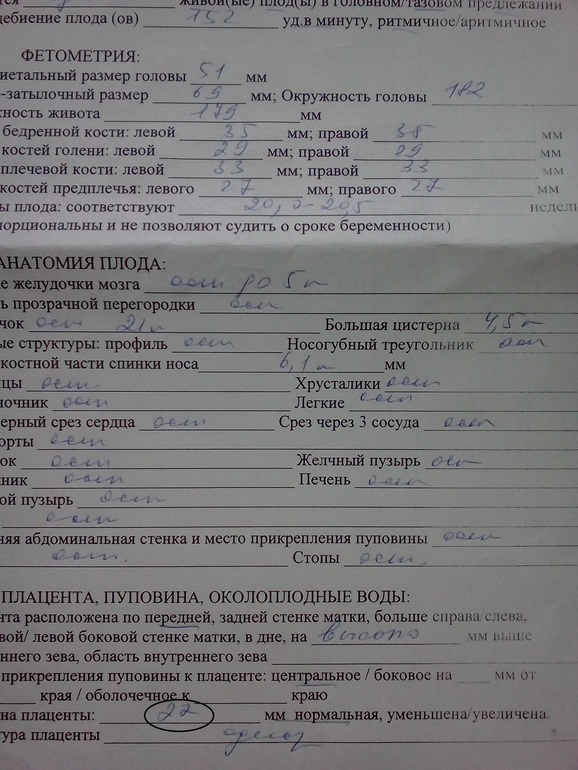 живой(ые) плод(ы) в головном/тазовом предлежании
цебиение плода (ов) 152 уд.в минуту, ритмичное/аритмичное
ФЕТОМЕТРИЯ:
иетальный размер головы 51 мм
-затылочный размер 69 мм; Окружность головы 182
жность живота 179 мм
бедренной кости: левой 35 мм; правой 35 мм
костей голени: левой 29 мм; правой 29 мм
плечевой кости: левой 33 мм; правой 33 мм
костей предплечья: левого 27 мм; правого 27 мм
ы плода: соответствуют 20,0-20,5 недели
порциональны и не позволяют судить о сроке беременности)
АНАТОМИЯ ПЛОДА:
е желудочки мозга осм до 5 м
ь прозрачной перегородки осм
чок осм 21 м Большая цистерна 4,5 м
ые структуры: профиль осм Носогубный треугольник осм
костной части спинки носа 6,1 м мм
цы осм Хрусталики осм
ночник осм Легкие осм
ерный срез сердца осм Срез через 3 сосуда осм
орты осм
ок осм Желчный пузырь осм
ник осм Печень осм
ой пузырь осм
осм
няя абдоминальная стенка и место прикрепления пуповины осм
осм. Стопы осм.
ПЛАЦЕНТА, ПУПОВИНА, ОКОЛОПЛОДНЫЕ ВОДЫ:
нта расположена по передней, задней стенке матки, больше справа/слева,
вой/ левой боковой стенке матки, в дне, на высоко мм выше
еннего зева, область внутреннего зева
прикрепления пуповины к плаценте: центральное / боковое на мм от
края / оболочечное к краю
на плаценты: 27 мм нормальная, уменьшена/увеличена.
тура плаценты